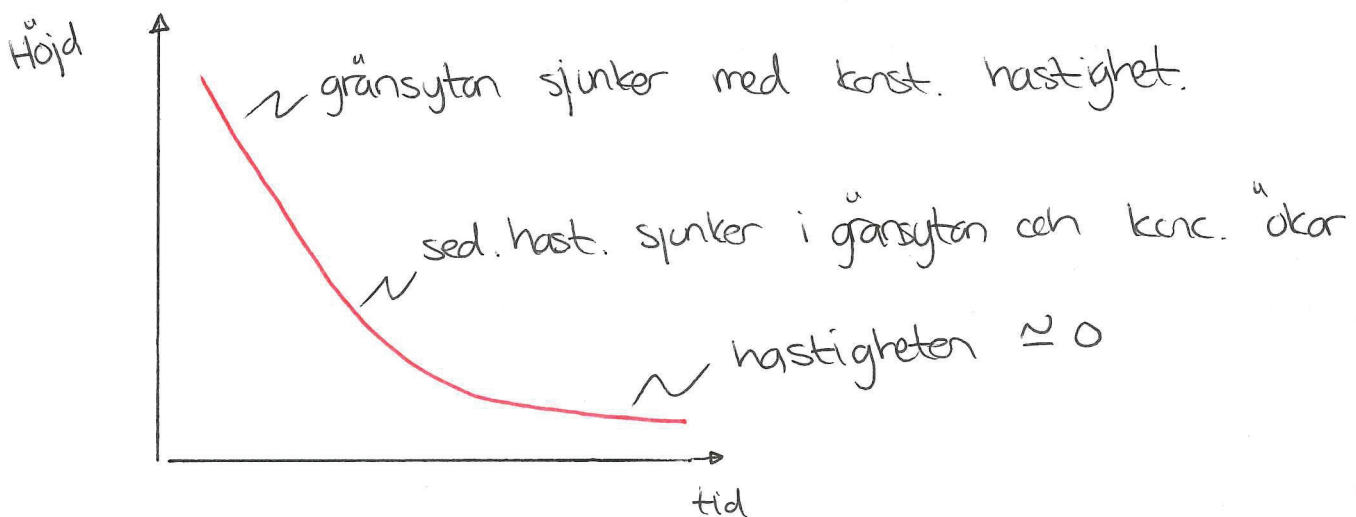 Höjd
gränsytan sjunker med konst. hastighet.
sed. hast. sjunker i gränsytan och konc. ökar
hastigheten ≃ 0
tid